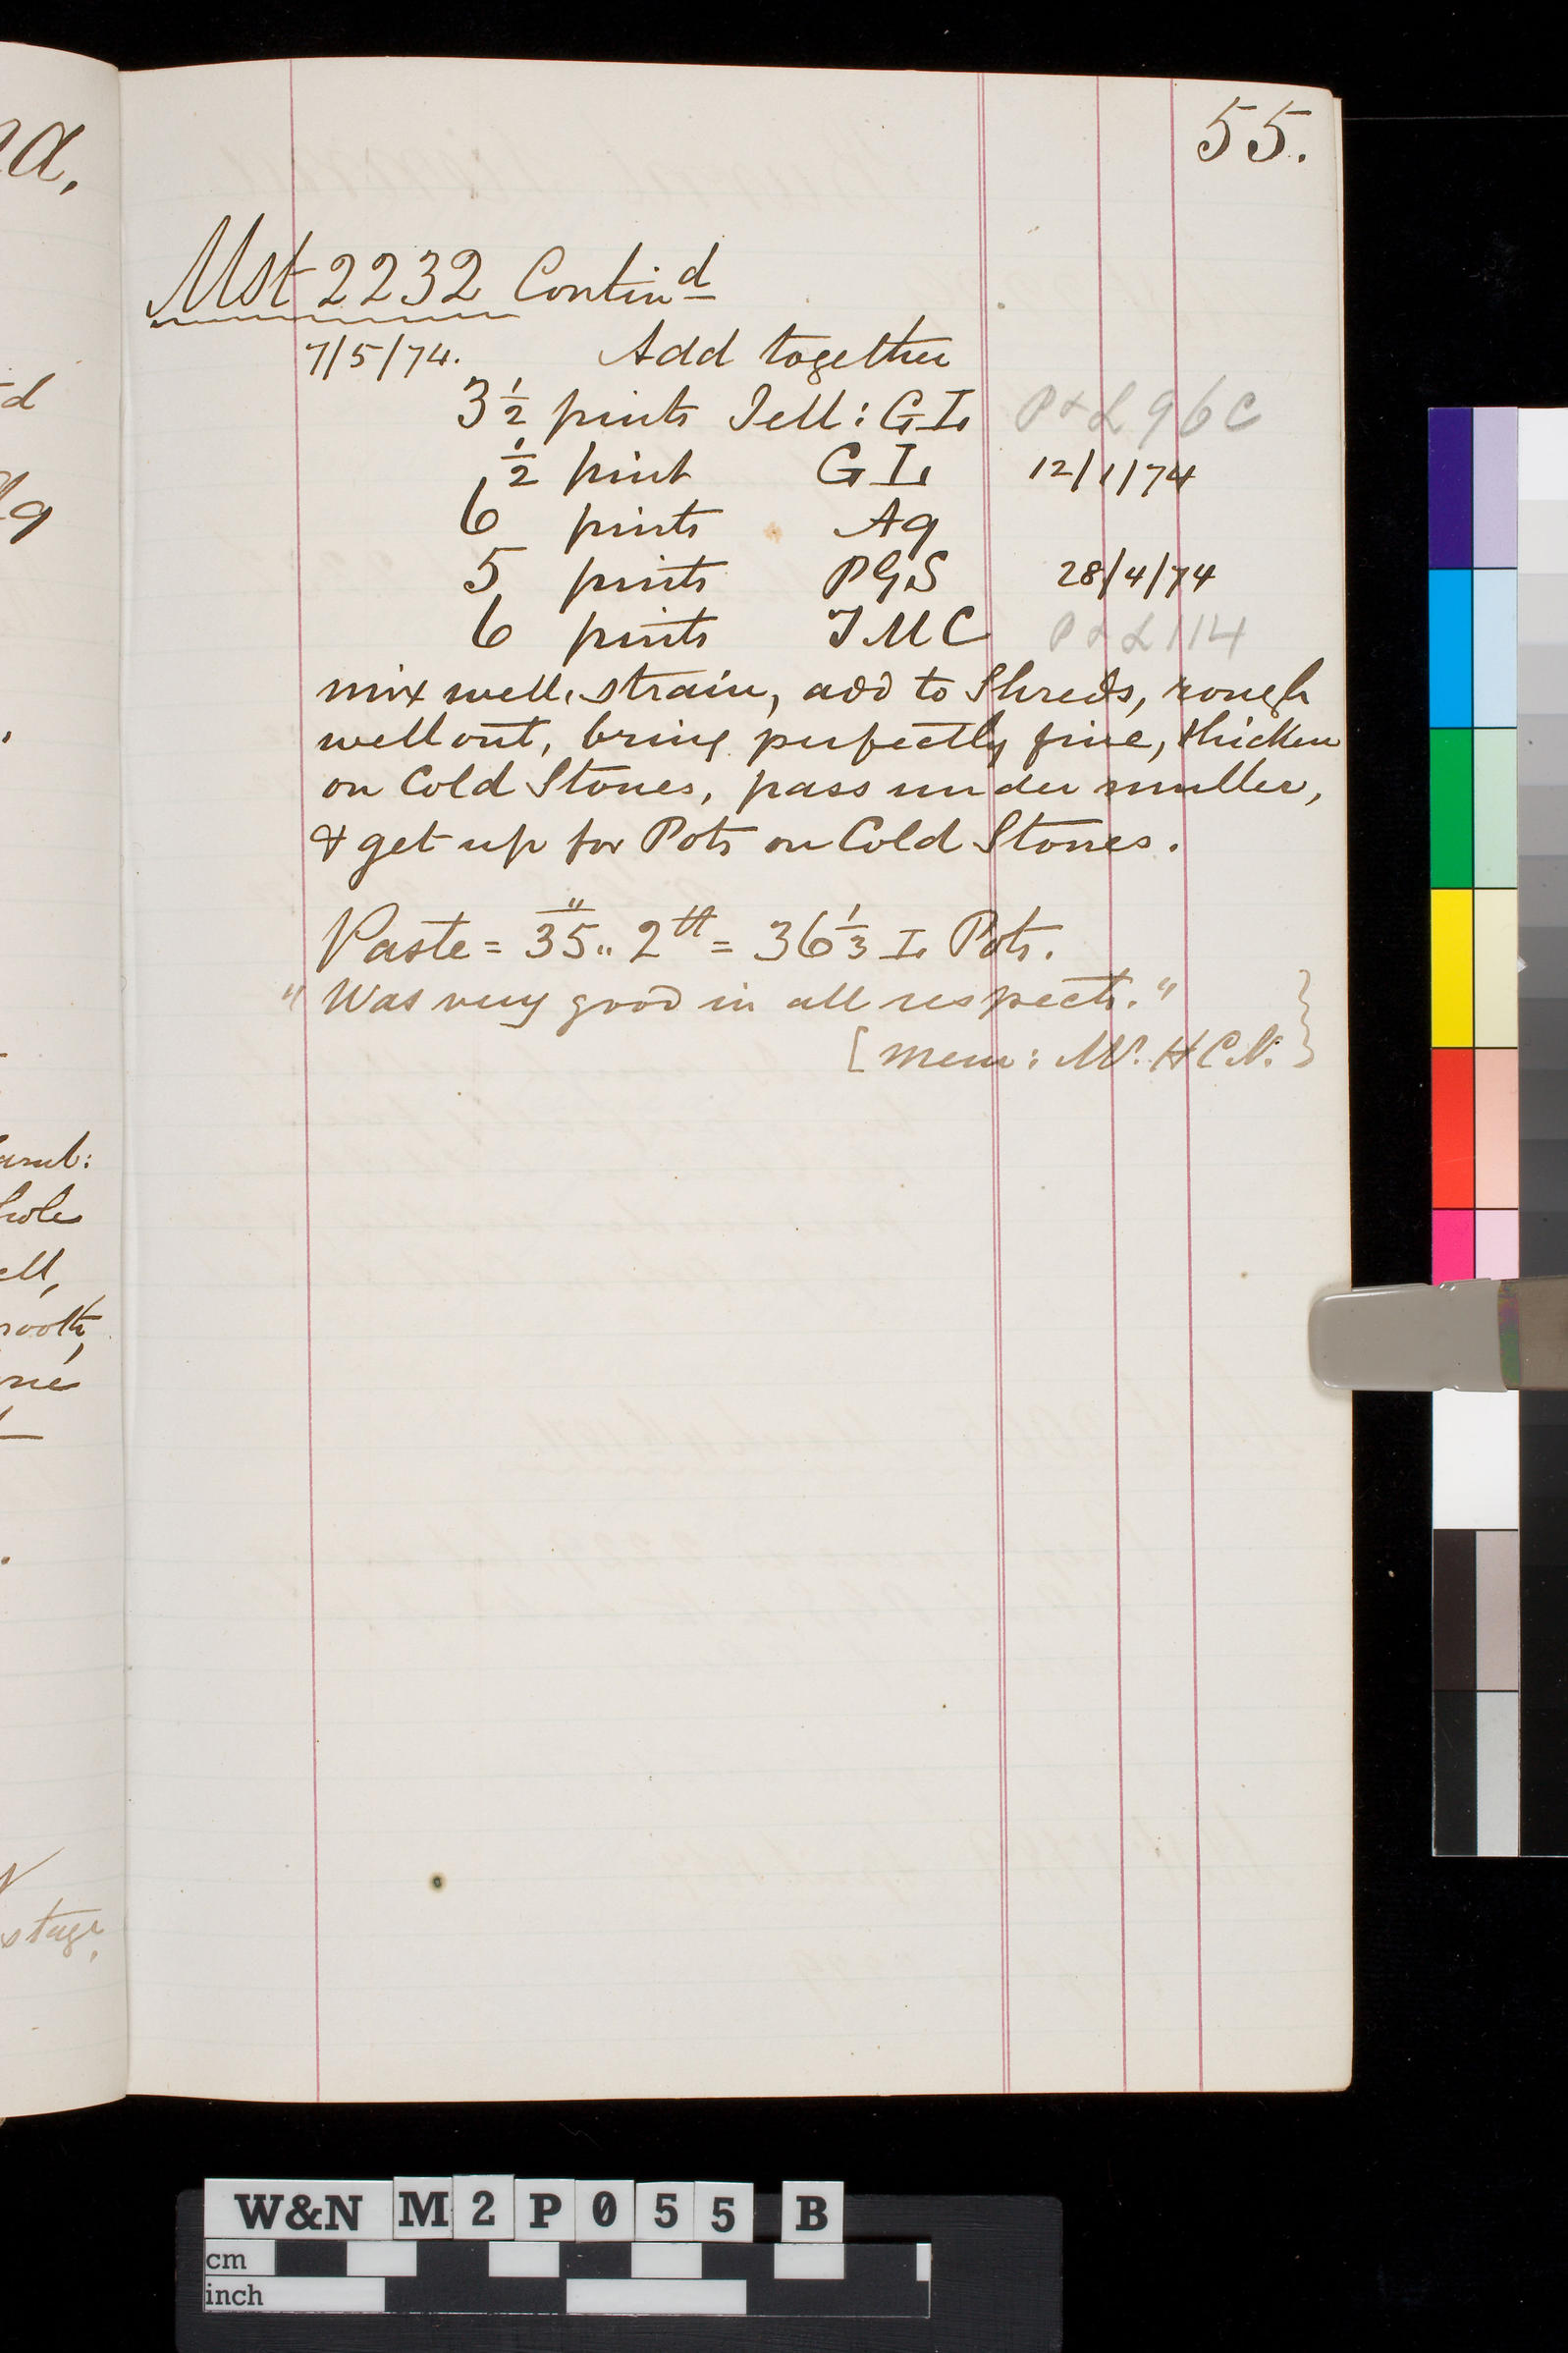 55.
Mst 2232 Contin<sup>d</sup>
7/5/74. Add together
3 1/2 pints Jell: GI P+L 96C
1/2 pint GI 12/1/74
6 pints Aq
5 pints PGS 28/4/74
6 pints JMC P+L 114
mix well, strain, add to Shreds, rough
well out, bring perfectly fine, thicken
on Cold Stones, pass under muller,
& get up for Pots on Cold Stones.
Paste = 35" 2 = 36 1/3 I. Pots.
"Was very good in all respects."
[Mem: Mr. HCN.}
na,
d
stage.
W&N M2P055 B
cm
inch